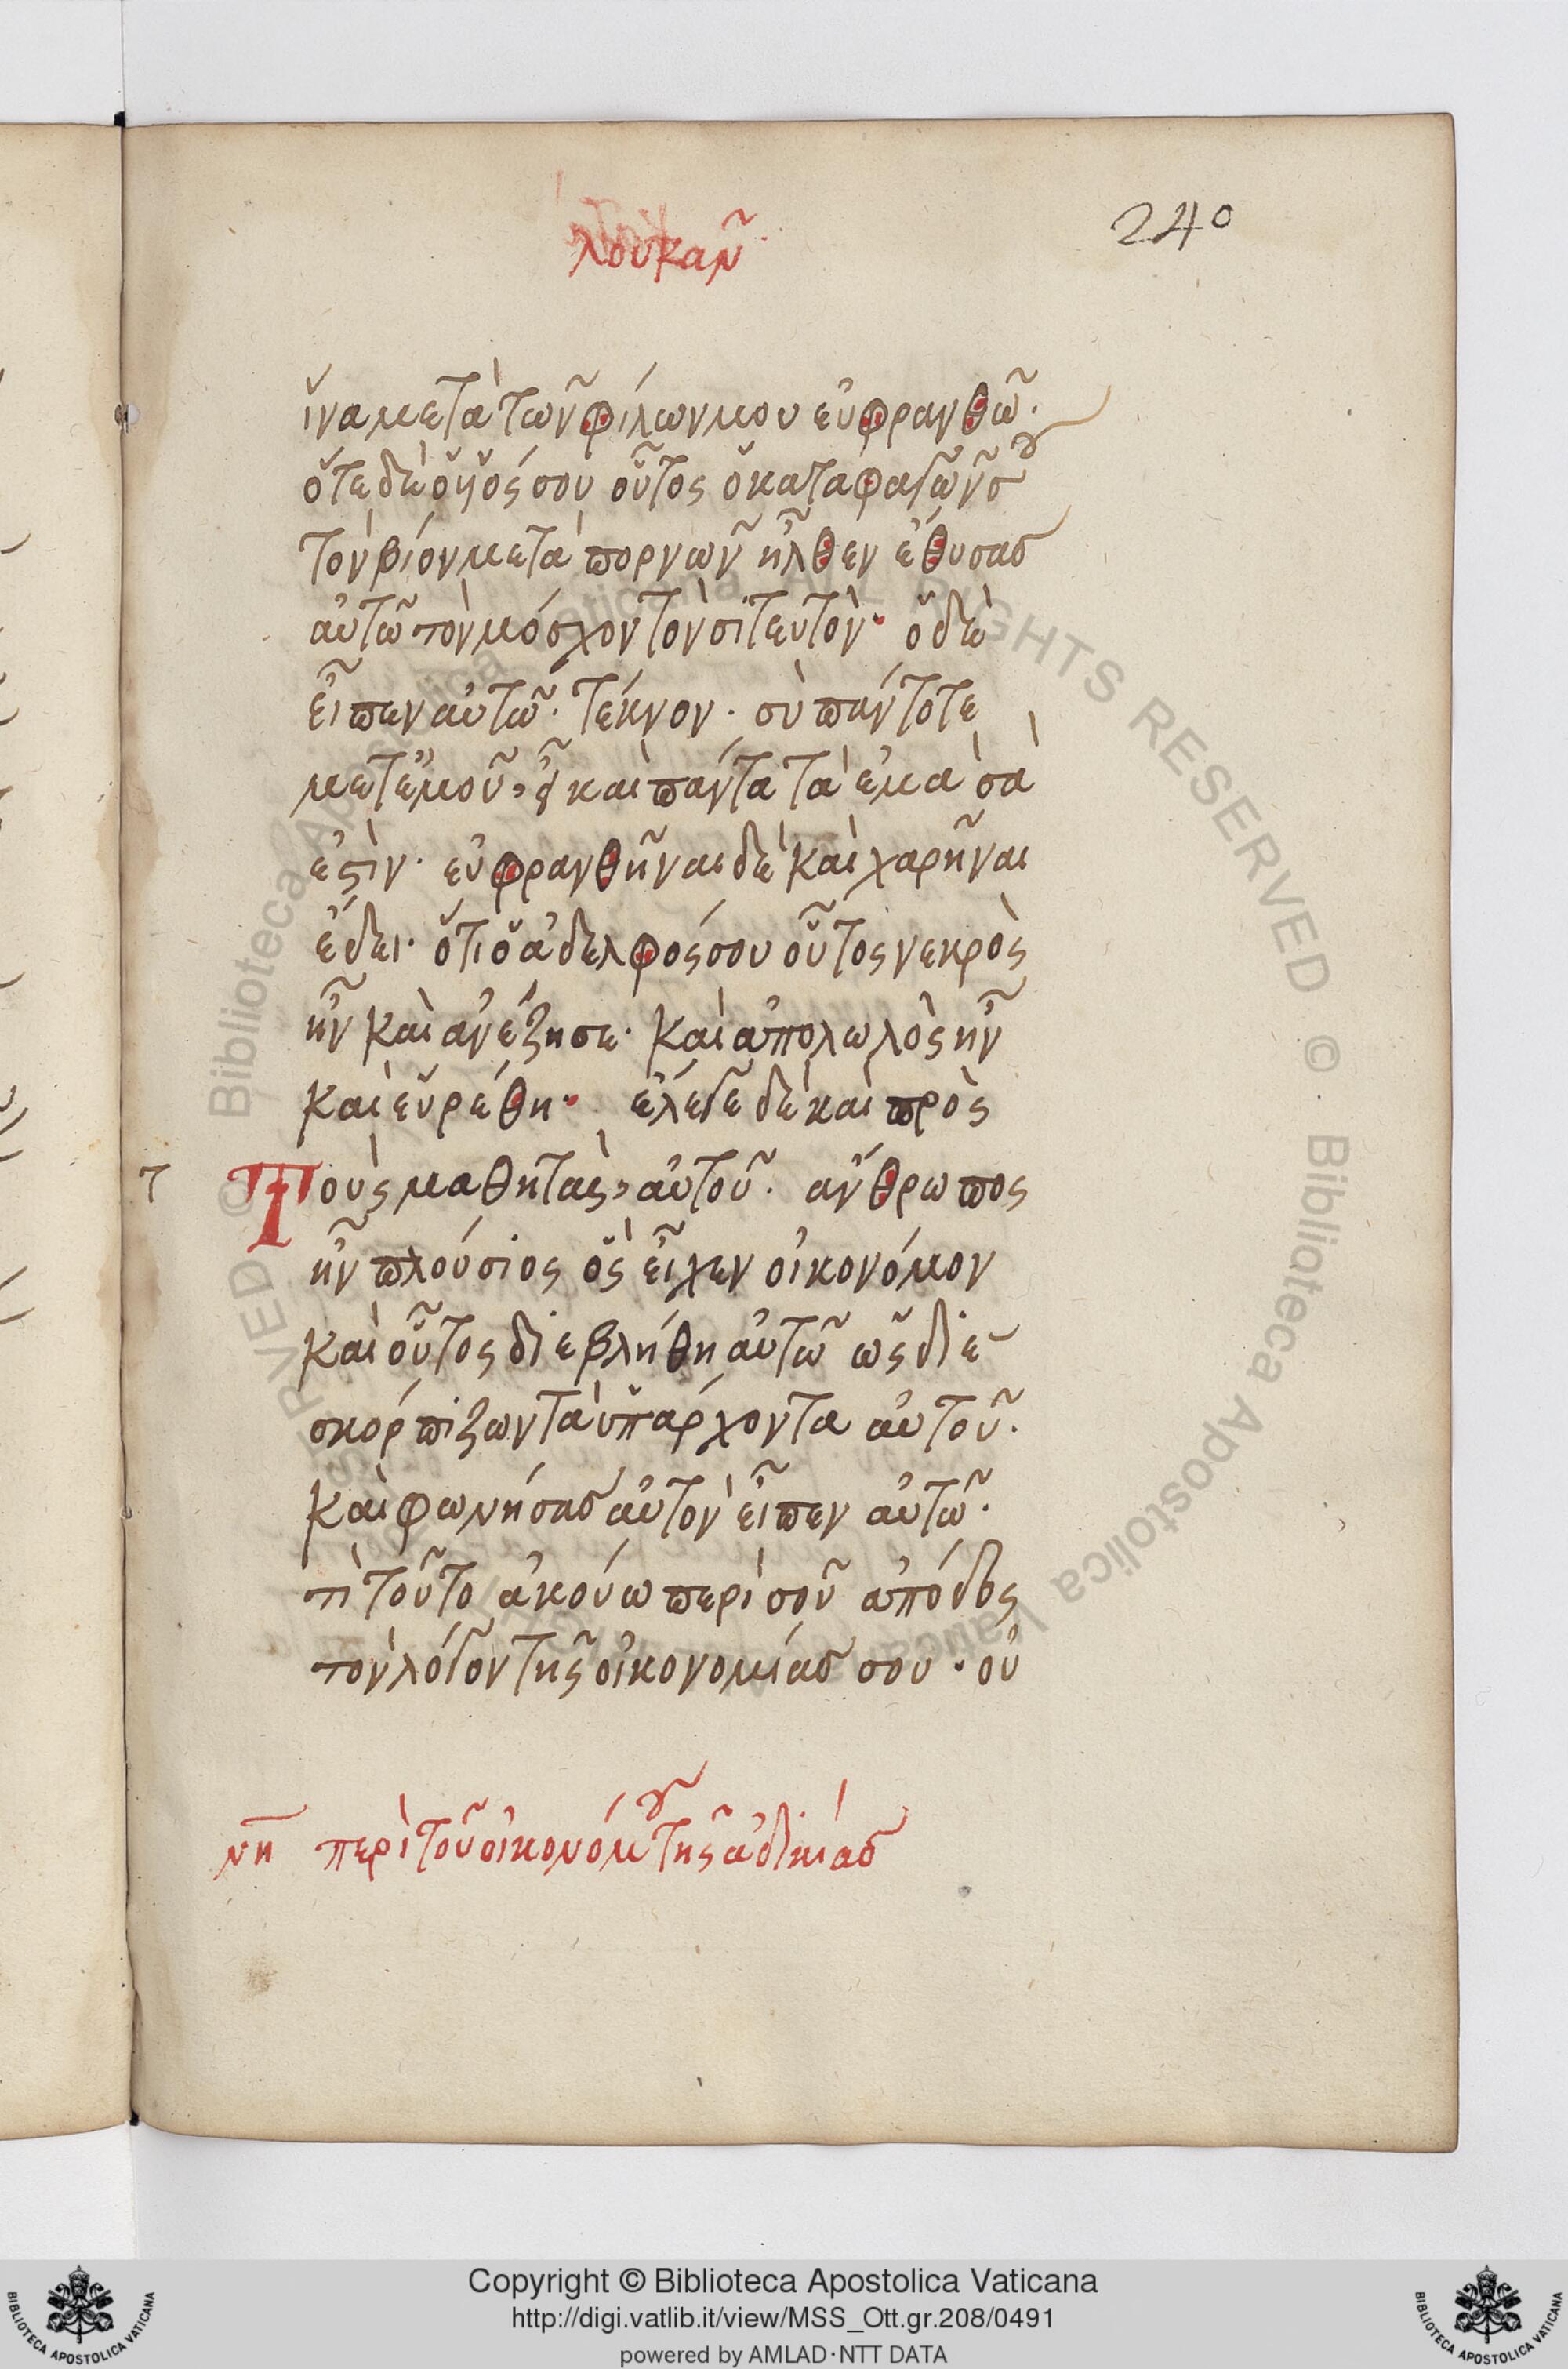 λουκᾶν
240
ἵνα μετὰ τῶν φίλων μου εὐφρανθῶ.
ὅτε δὲ ὁ ὑιός σου οὗτος ὁ καταφαγῶν σου
τὸν βίον μετὰ πορνῶν ἦλθεν ἔθυσας
αὐτῶ τὸν μόσχον τὸν σιτευτὸν· ὁ δὲ
εἶπεν αὐτῶ. τέκνον. σὺ πάντοτε
μετ ἐμοῦ, εἶ καὶ πάντα τὰ ἐμὰ σὰ
ἐστὶν· εὐφρανθῆναι δὲ καὶ χαρῆναι
ἔδει. ὅτι ὁ ἀδελφός σου οὗτος νεκρὸς
ἦν καὶ ἀνέζησε. καὶ ἀπολωλὸς ἦν
καὶ εὑρέθη. ἔλεγε δὲ καὶ πρὸς
τ Τοὺς μαθητὰς, αὐτοῦ. ἄνθρωπος
ἦν πλούσιος ὃς εἶχεν οἰκονόμον
καὶ οὗτος διεβλήθη αὐτῶ ὡς διε
σκόρπιζων τὰ ὑπάρχοντα αὐτοῦ.
καὶ φωνήσας αὐτὸν εἶπεν αὐτῶ.
τὶ τοῦτο ἀκούω περὶ σοῦ ἀπόδος
τὸν λόγον τῆς οἰκονομίας σου. οὐ
νη περὶ τοῦ οἰκονόμου τῆς ἀδικίας
Copyright © Biblioteca Apostolica Vaticana
http://digi.vatlib.it/view/MSS_Ott.gr.208/0491
powered by AMLAD·NTT DATA